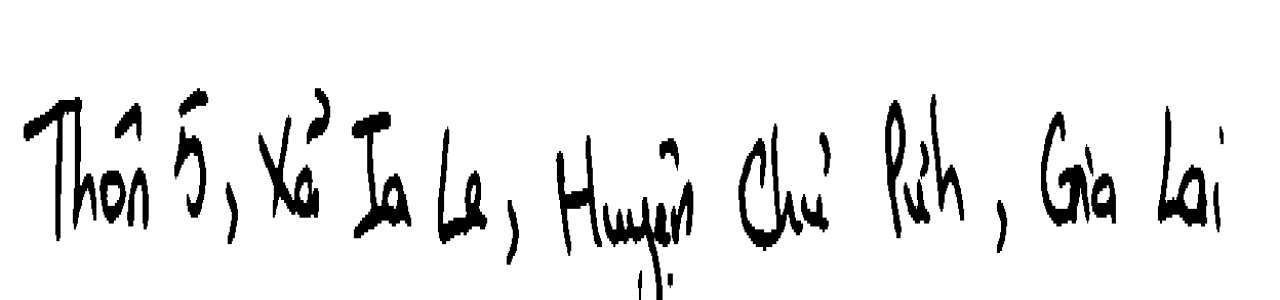 Thôn 5, Xã Ia Le, Huyện Chư Pưh, Gia Lai